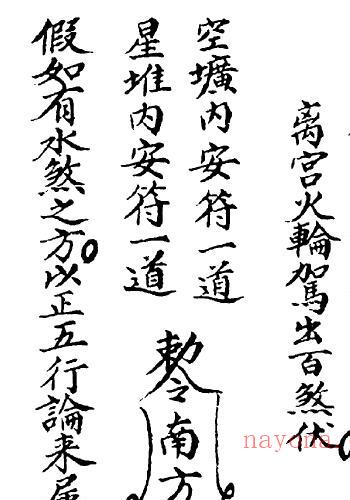 离宮火輪駕出百煞伏
空壙内安符一道
星堆内安符一道
勅令南方
假如有水煞之方以正五行論来
nayona